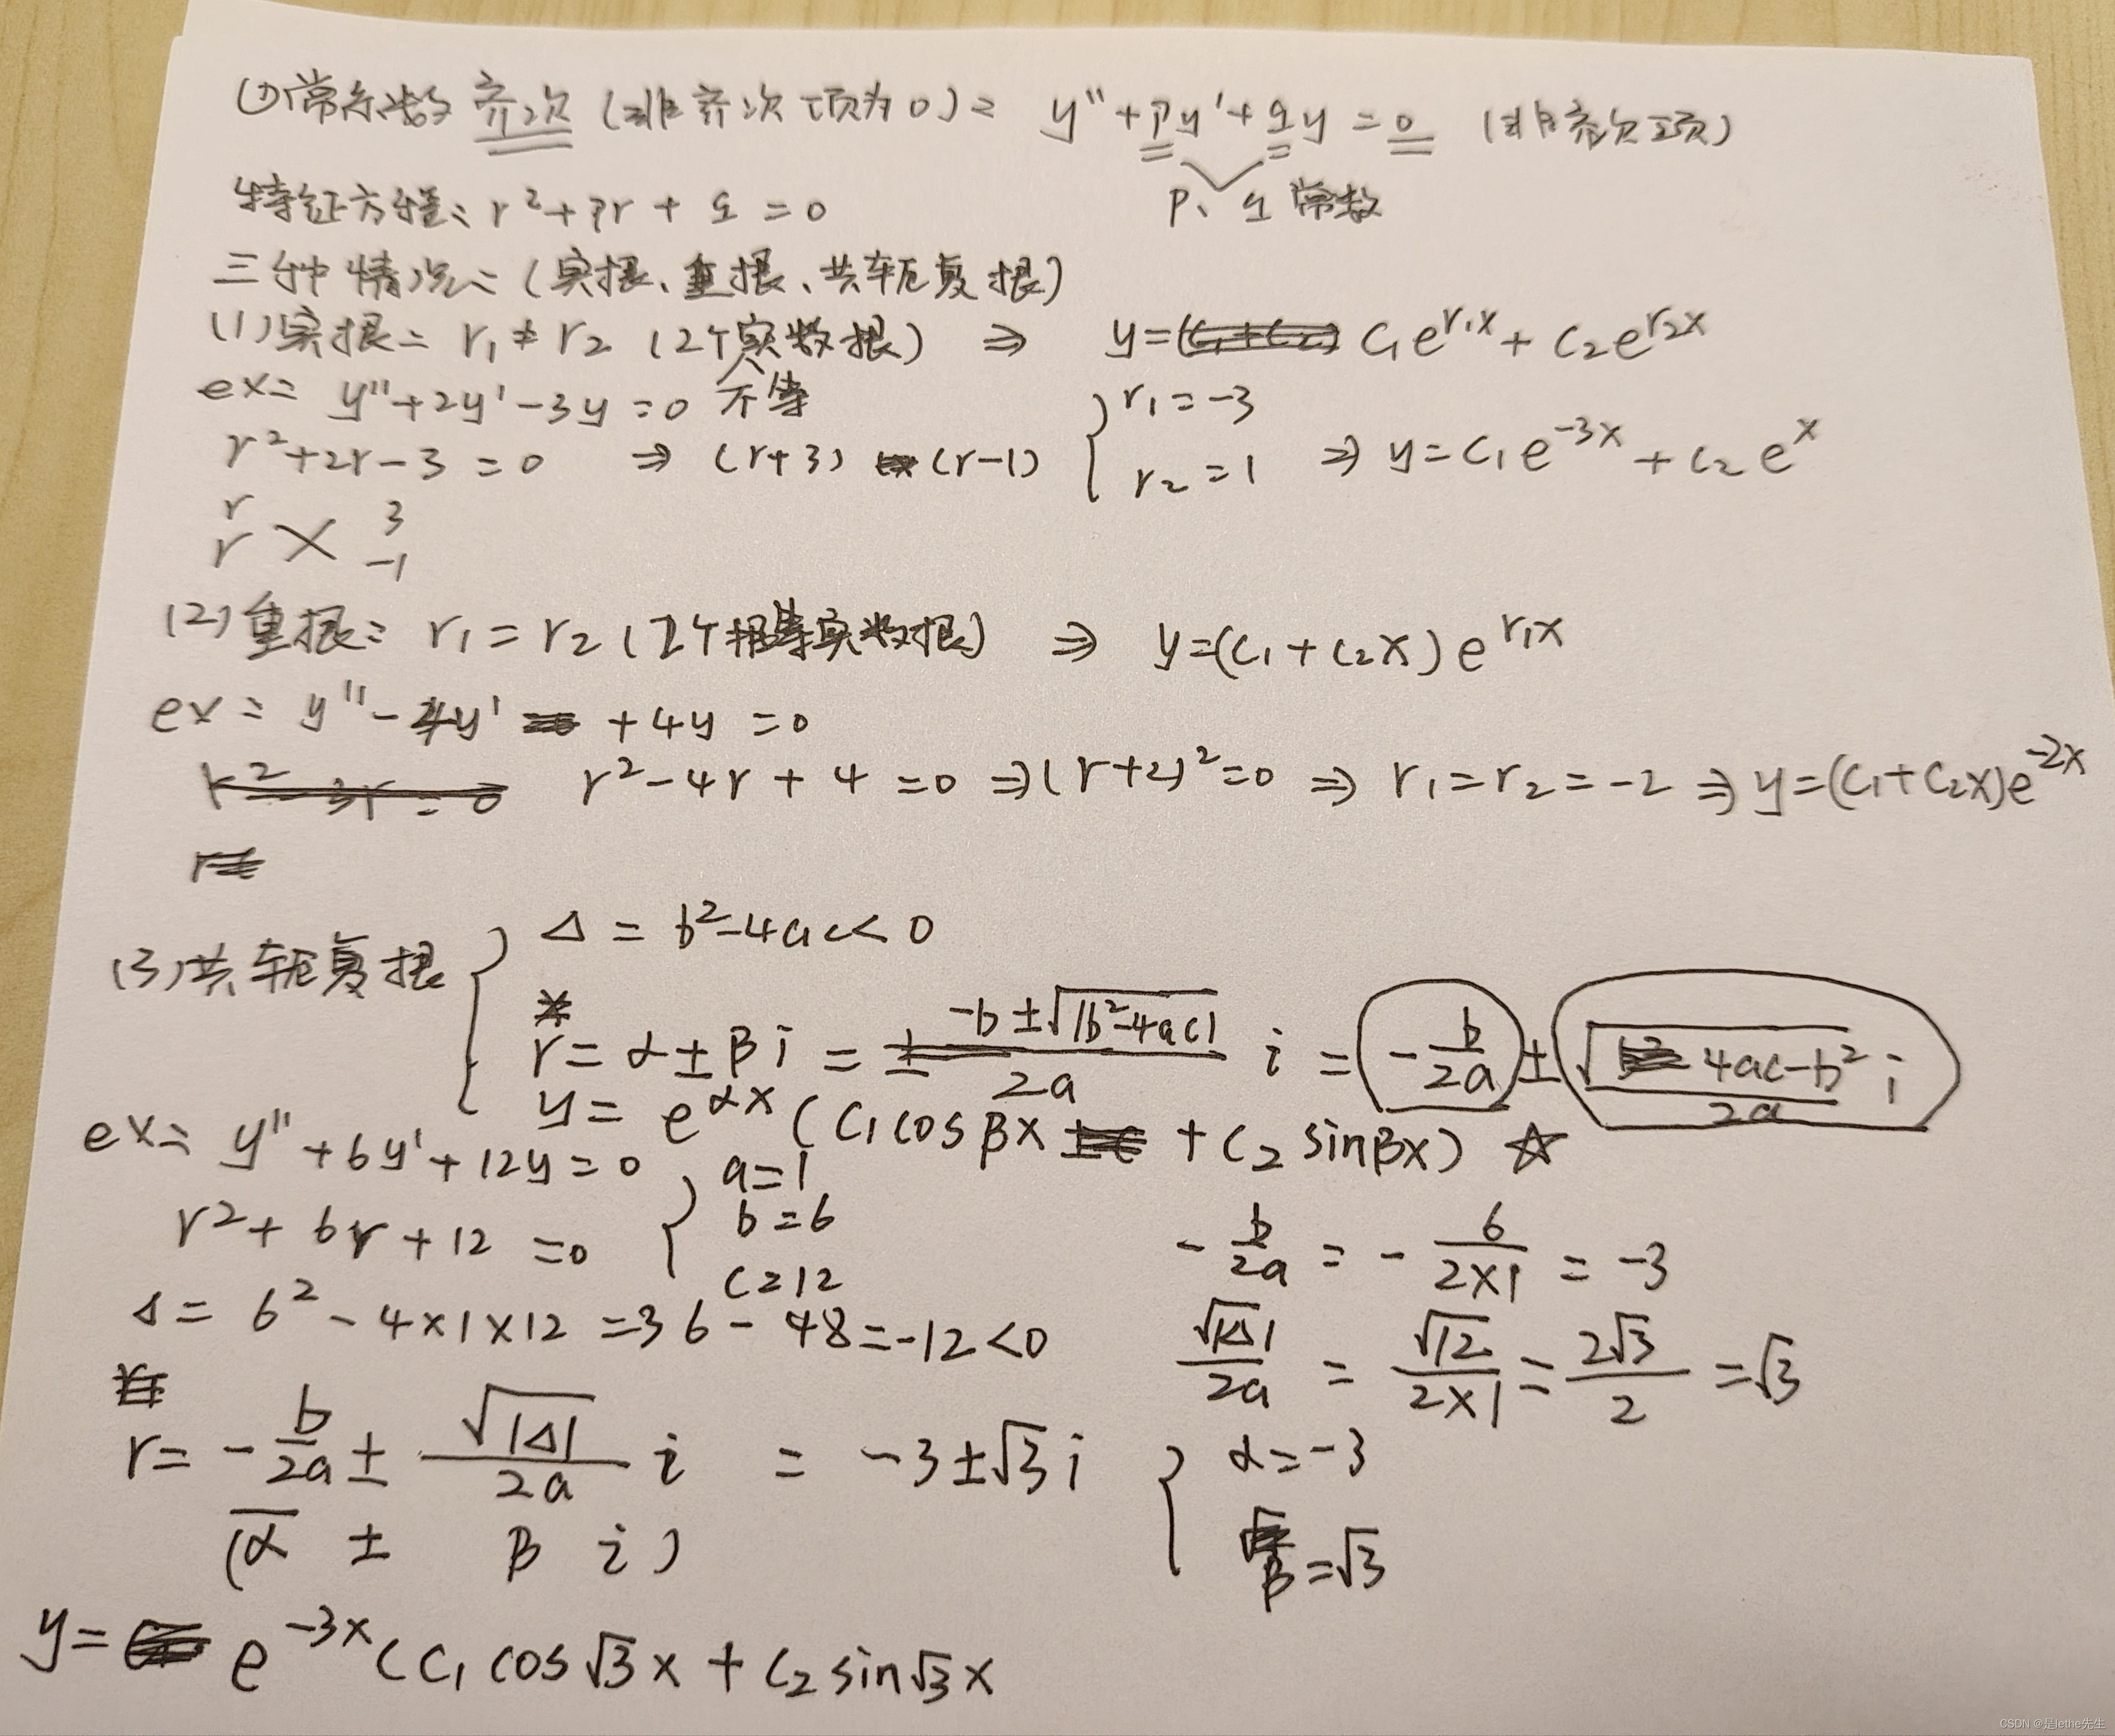 ①常系数齐次(非齐次项为0): y''+py'+qy=0 (非齐次项)
p、q常数
特征方程: r²+pr+q=0
三种情况: (实根、重根、共轭复根)
(1)实根: r₁≠r₂ (2个不等实数根) ⇒ y=C₁e^{r₁x}+C₂e^{r₂x}
ex: y''+2y'-3y=0
r²+2r-3=0 ⇒ (r+3)(r-1) { r₁=-3 r₂=1 ⇒ y=C₁e^{-3x}+C₂e^x
r 3
r × -1
(2)重根: r₁=r₂ (2个相等实数根) ⇒ y=(C₁+C₂x)e^{r₁x}
ex: y''-4y'+4y=0
r²-4r+4=0 ⇒ (r+2)²=0 ⇒ r₁=r₂=-2 ⇒ y=(C₁+C₂x)e^{-2x}
(3)共轭复根 { Δ=b²-4ac<0
r=α±βi= \frac{-b±√|b²-4ac|}{2a} i = -\frac{b}{2a} ± \frac{√4ac-b²}{2a} i
y=e^{αx}(C₁cosβx+C₂sinβx) ☆
ex: y''+6y'+12y=0
r²+6r+12=0 { a=1 b=6 c=12
Δ=6²-4×1×12=36-48=-12<0
-\frac{b}{2a}=-\frac{6}{2×1}=-3
\frac{√|Δ|}{2a}=\frac{√12}{2×1}=\frac{2√3}{2}=√3
r=-\frac{b}{2a}±\frac{√|Δ|}{2a} i = -3±√3i { α=-3 β=√3
(α ± β i)
y=e^{-3x}(C₁cos√3x+C₂sin√3x
CSDN @是lethe先生